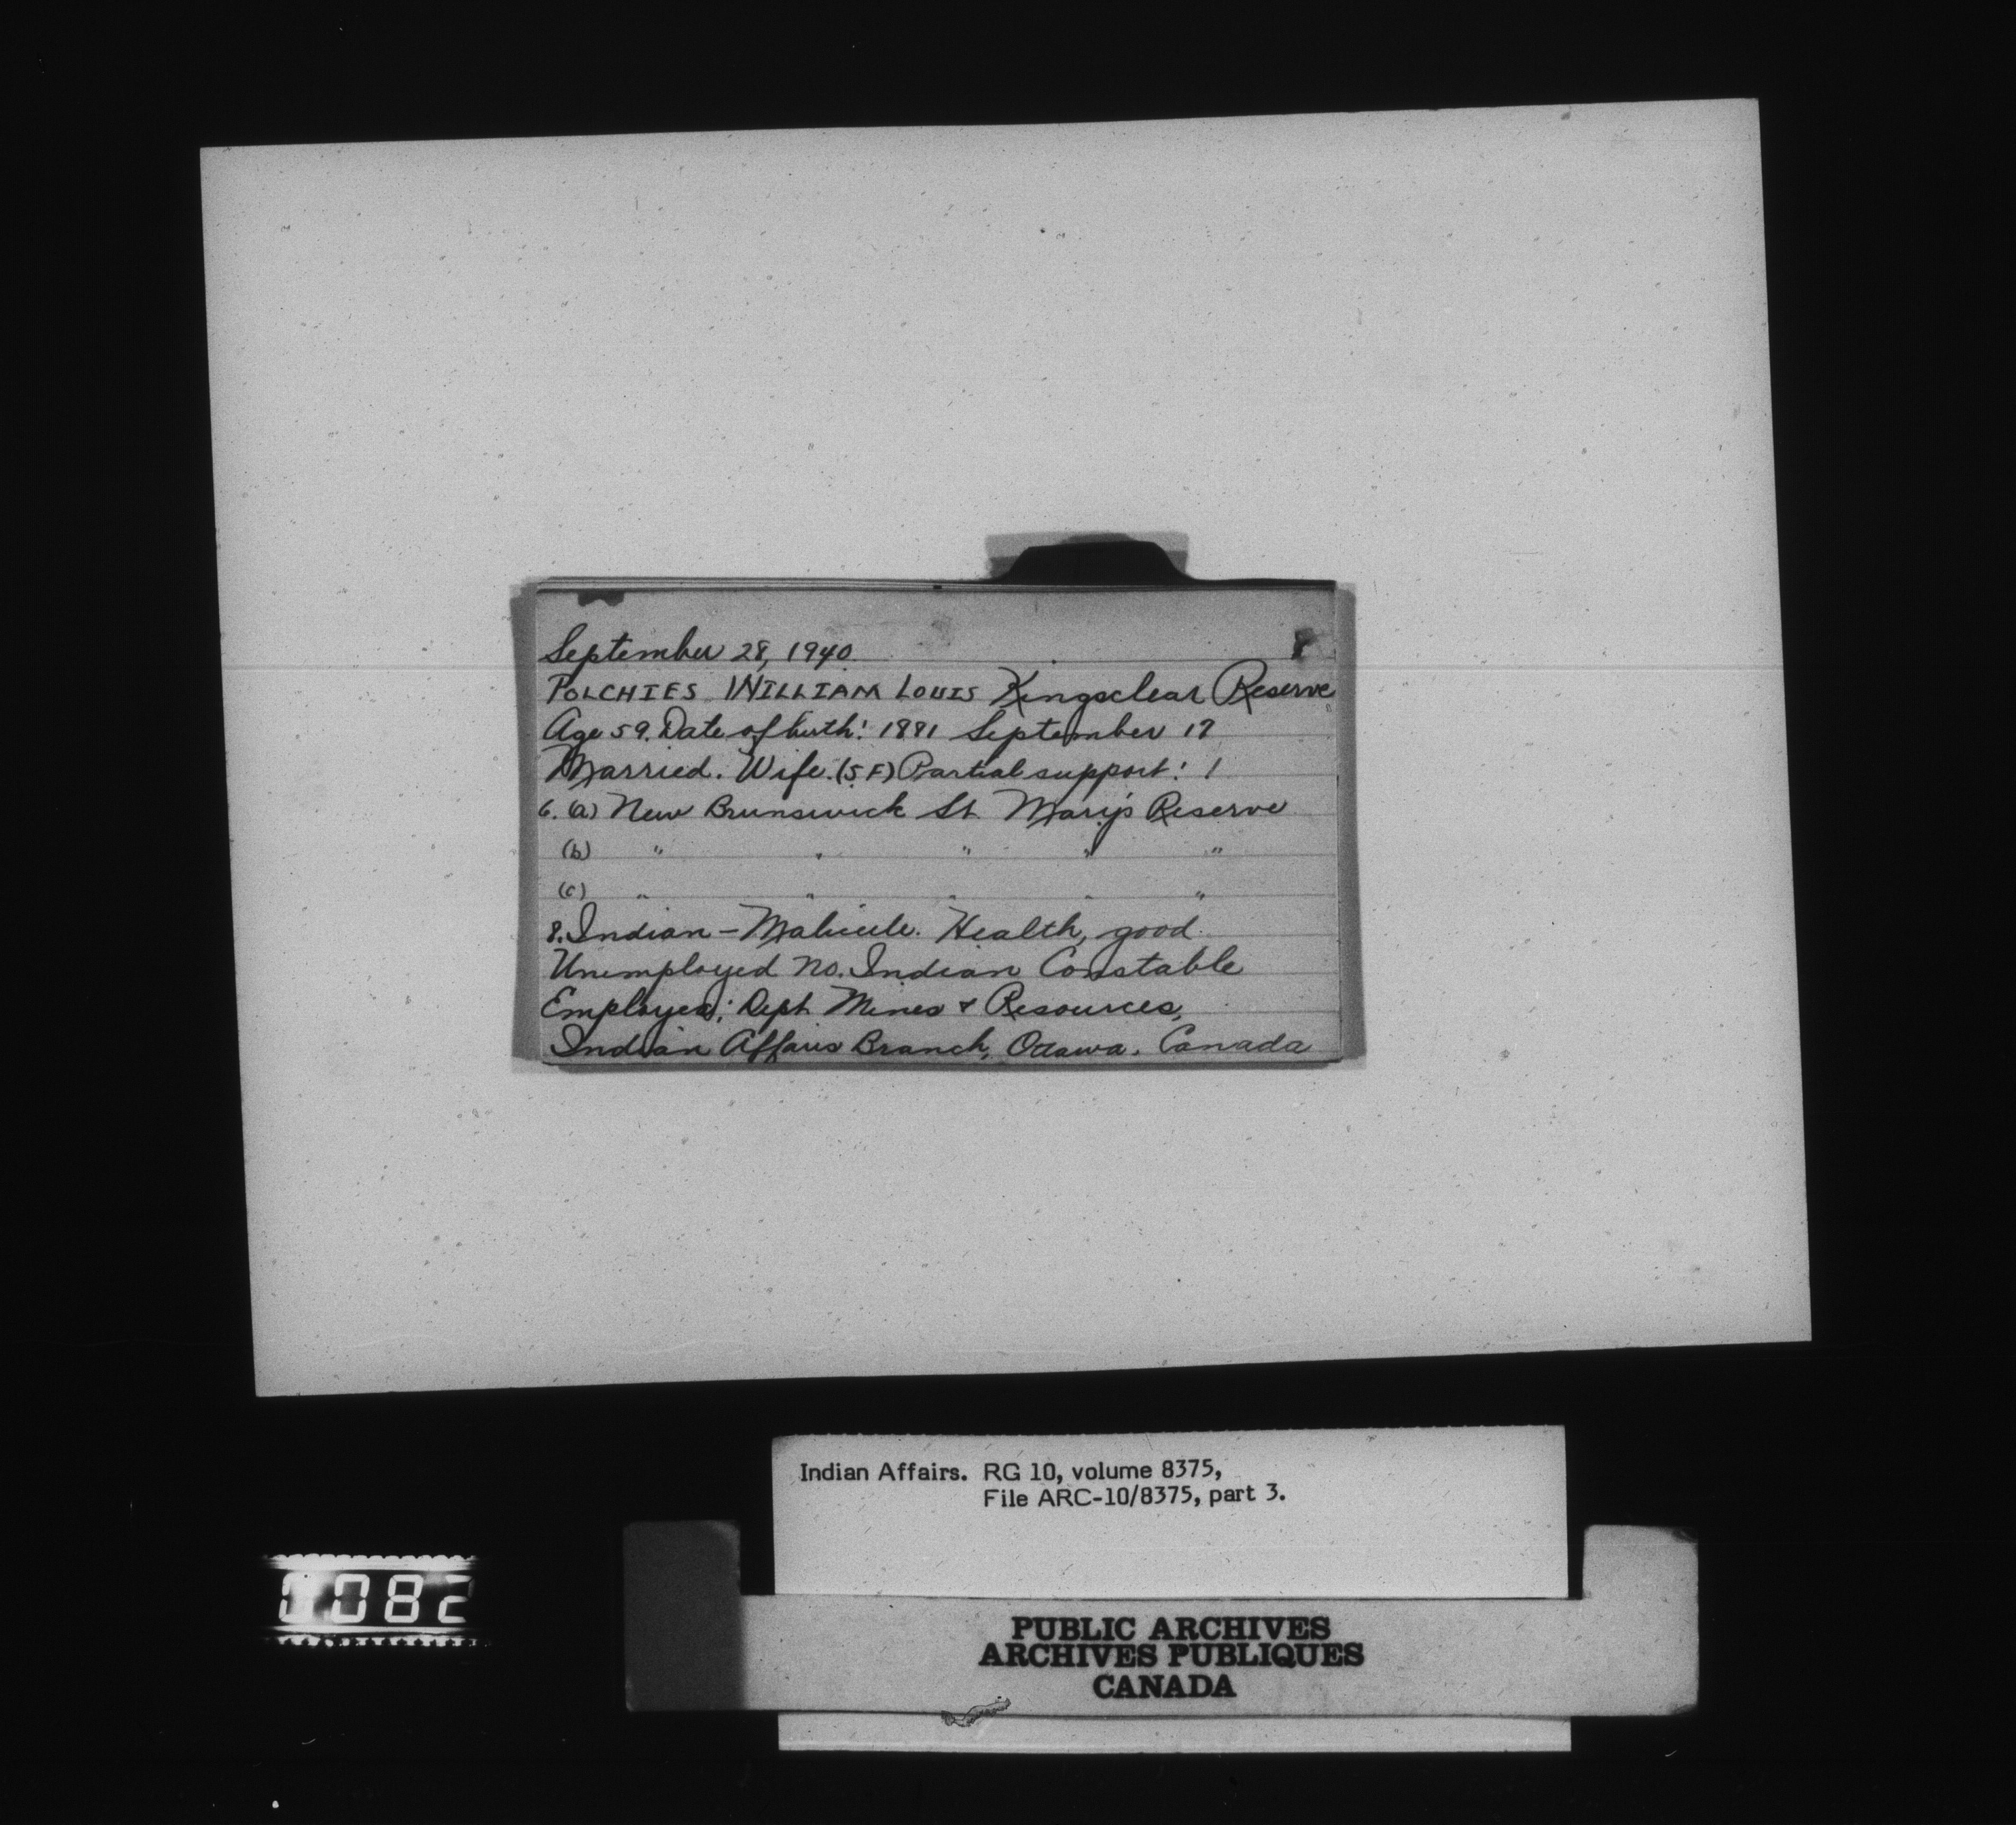 September 28, 1940. 8
POLCHIES WILLIAM LOUIS Kingsclear Reserve
Age 59. Date of birth: 1881 September 17
Married. Wife. (S F) Partial support: 1
6. (a) New Brunswick St. Mary's Reserve
(b) " " " " "
(c) " " " " "
8. Indian - Malicite. Health, good.
Unemployed no. Indian Constable
Employed: Dept Mines & Resources,
Indian Affairs Branch, Ottawa. Canada
Indian Affairs. RG 10, volume 8375,
File ARC-10/8375, part 3.
0082
PUBLIC ARCHIVES
ARCHIVES PUBLIQUES
CANADA